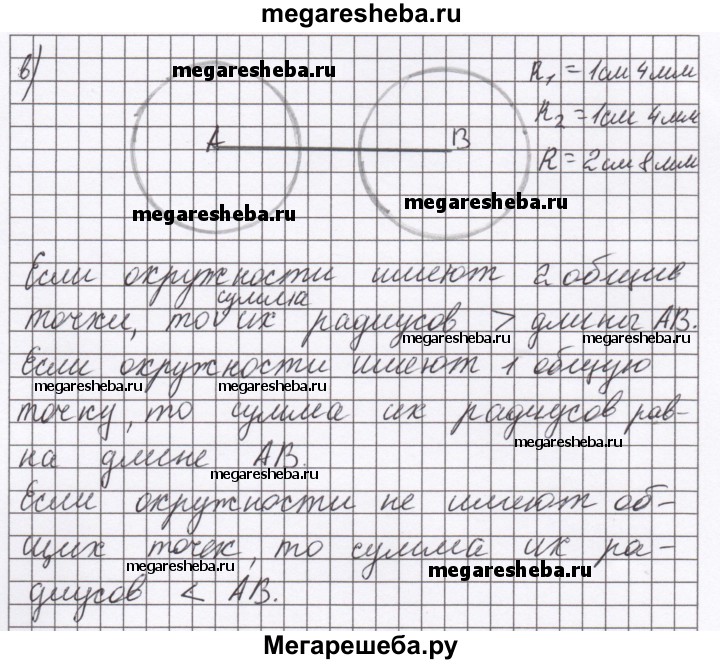 megaresheba.ru
в)
megaresheba.ru
R₁ = 1см 4мм
R₂ = 1см 4мм
A
B
R = 2см 8мм
megaresheba.ru
megaresheba.ru
Если окружности имеют 2 общие
сумма
точки, то их радиусов > длины AB.
megaresheba.ru
megaresheba.ru
megaresheba.ru
Если окружности имеют 1 общую
megaresheba.ru
megaresheba.ru
точку, то сумма их радиусов рав-
megaresheba.ru
на длине AB.
megaresheba.ru
Если окружности не имеют об-
щих точек, то сумма их ра-
megaresheba.ru
megaresheba.ru
диусов < AB.
Мегарешеба.ру